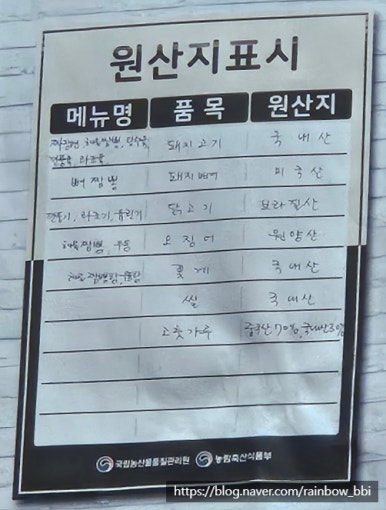 원산지표시
메뉴명 품목 원산지
짜장면, 해물짬뽕, 탕수육 돼지고기 국내산
뼈짬뽕 돼지뼈 미국산
깐풍기, 라조기, 유린기 닭고기 브라질산
해물짬뽕, 우동 오징어 원양산
해물짬뽕탕, 꽃게 국내산
쌀 국내산
고춧가루 중국산70%, 국내산30%
국립농산물품질관리원 농림축산식품부
https://blog.naver.com/rainbow_bbi